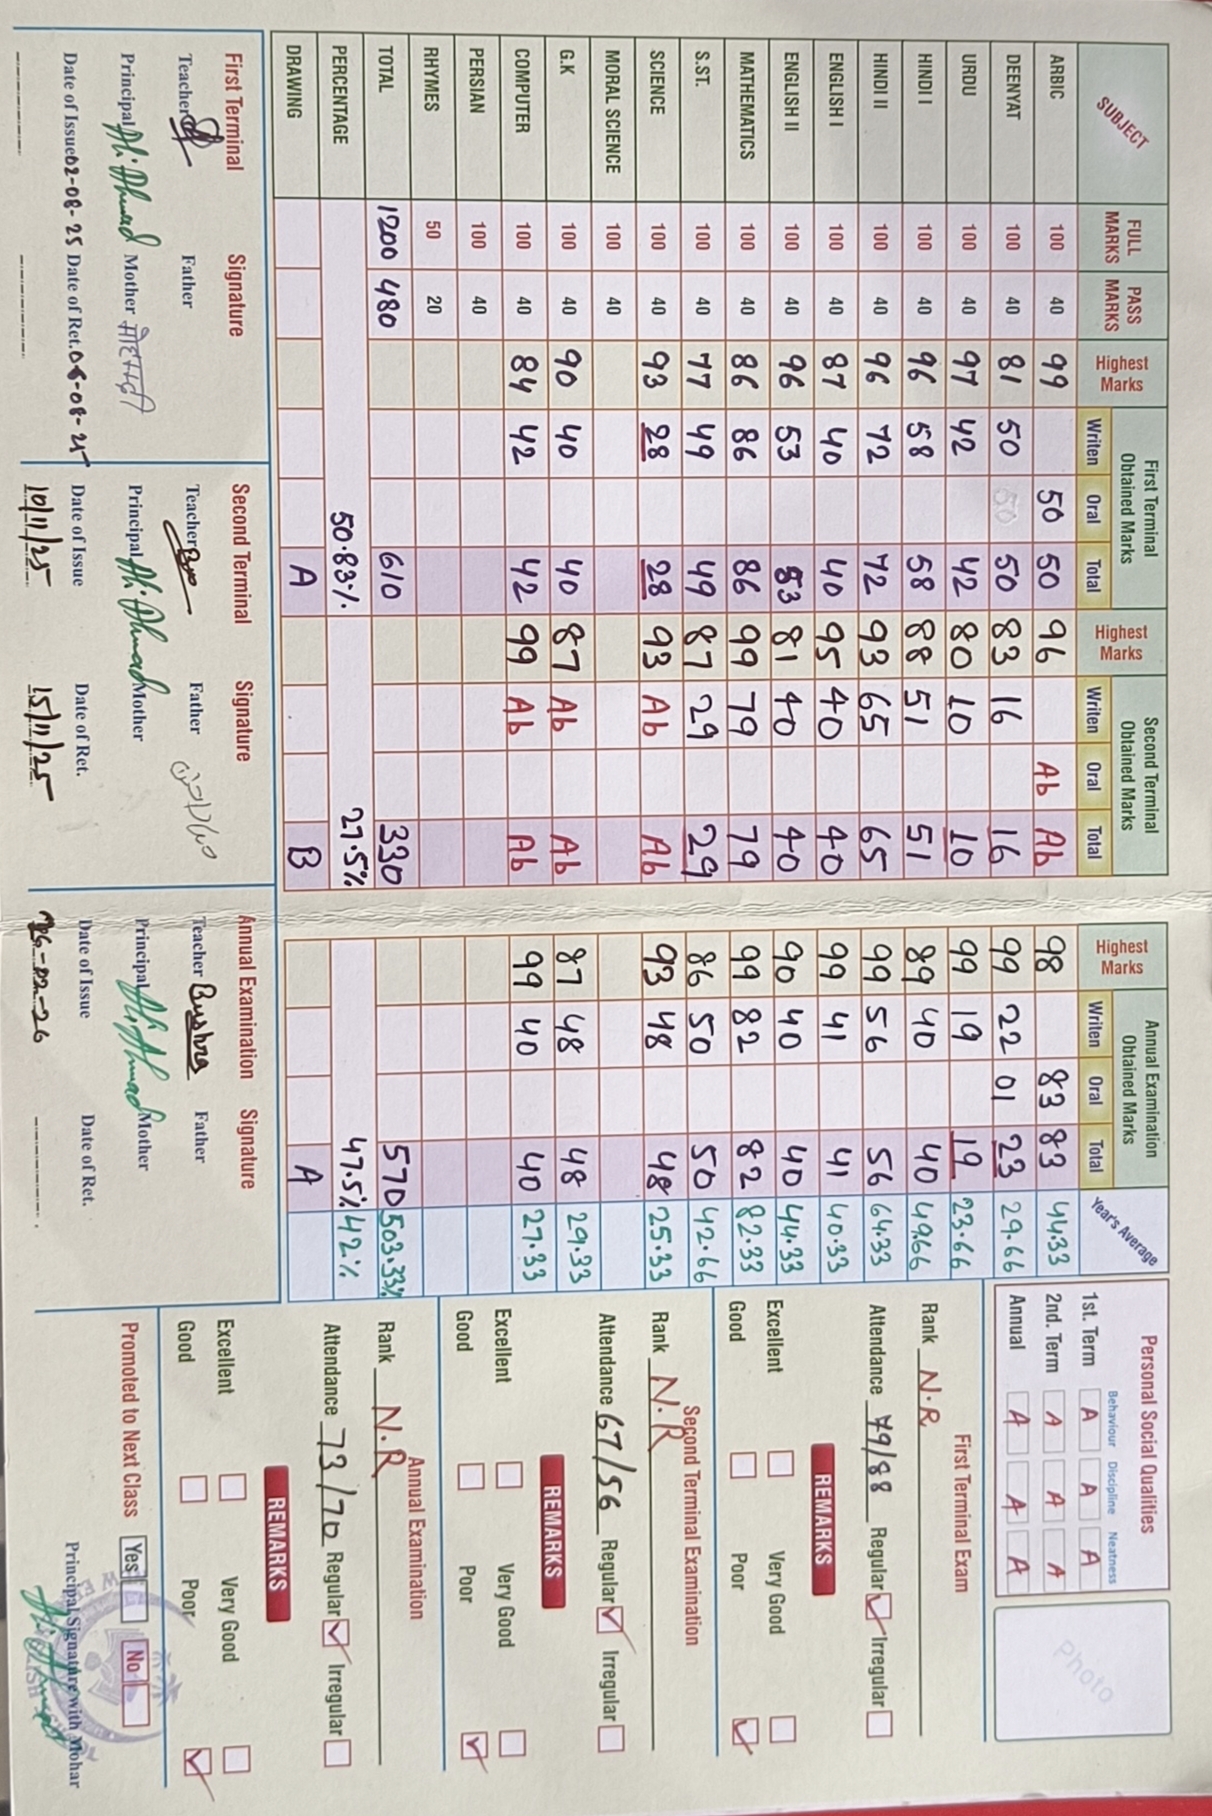 SUBJECT FULL MARKS PASS MARKS Highest Marks First Terminal Obtained Marks Writen Oral Total Highest Marks Second Terminal Obtained Marks Writen Oral Total Highest Marks Annual Examination Obtained Marks Writen Oral Total Year's Average
ARBIC 100 40 99 50 50 96 Ab Ab 98 83 83 44.33
DEENYAT 100 40 81 50 50 50 83 16 16 99 22 01 23 29.66
URDU 100 40 97 42 42 80 10 10 99 19 19 23.66
HINDI I 100 40 96 58 58 88 51 51 89 40 40 49.66
HINDI II 100 40 96 72 72 93 65 65 99 56 56 64.33
ENGLISH I 100 40 87 40 40 95 40 40 99 41 41 40.33
ENGLISH II 100 40 96 53 53 81 40 40 90 40 40 44.33
MATHEMATICS 100 40 86 86 86 99 79 79 99 82 82 82.33
S.ST. 100 40 77 49 49 87 29 29 86 50 50 42.66
SCIENCE 100 40 93 28 28 93 Ab Ab 93 48 48 25.33
MORAL SCIENCE 100 40
G.K 100 40 90 40 40 87 Ab Ab 87 48 48 29.33
COMPUTER 100 40 84 42 42 99 Ab Ab 99 40 40 27.33
PERSIAN 100 40
RHYMES 50 20
TOTAL 1200 480 610 330 570 503.33%
PERCENTAGE 50.83% 27.5% 47.5% 42%
DRAWING A B A
First Terminal Signature
Teacher Father
Principal Ali Ahmad Mother मोहसती
Date of Issue 02-08-25 Date of Ret.
Second Terminal Signature
Teacher Father
Principal Ali Ahmad Mother
Date of Issue Date of Ret.
10/11/25 15/11/25
Annual Examination Signature
Teacher Bushra Father
Principal Ali Ahmad Mother
Date of Issue Date of Ret.
Personal Social Qualities
Behaviour Discipline Neatness
1st. Term A A A
2nd. Term A A A
Annual A A A
Photo
First Terminal Exam
Rank N.R
Attendance 79/88 Regular Irregular
REMARKS
Excellent Very Good
Good Poor
Second Terminal Examination
Rank N.R
Attendance 67/56 Regular Irregular
REMARKS
Excellent Very Good
Good Poor
Annual Examination
Rank N.R
Attendance 73/70 Regular Irregular
REMARKS
Excellent Very Good
Good Poor
Promoted to Next Class Yes No
Principal Signature with Mohar
Ali Ahmad